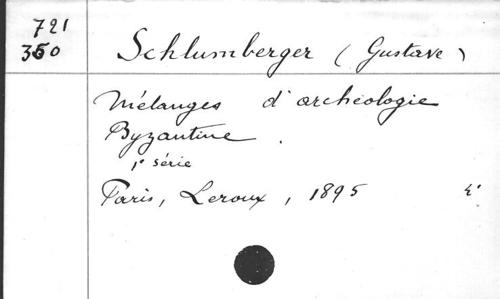 721
360
Schlumberger (Gustave)
Mélanges d'archéologie
Byzantine.
1e série
Paris, Leroux, 1895 4°